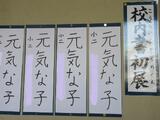 校内書初展
元気な子
小二
元気な子
小二
元気な子
小二
元気な子
小二